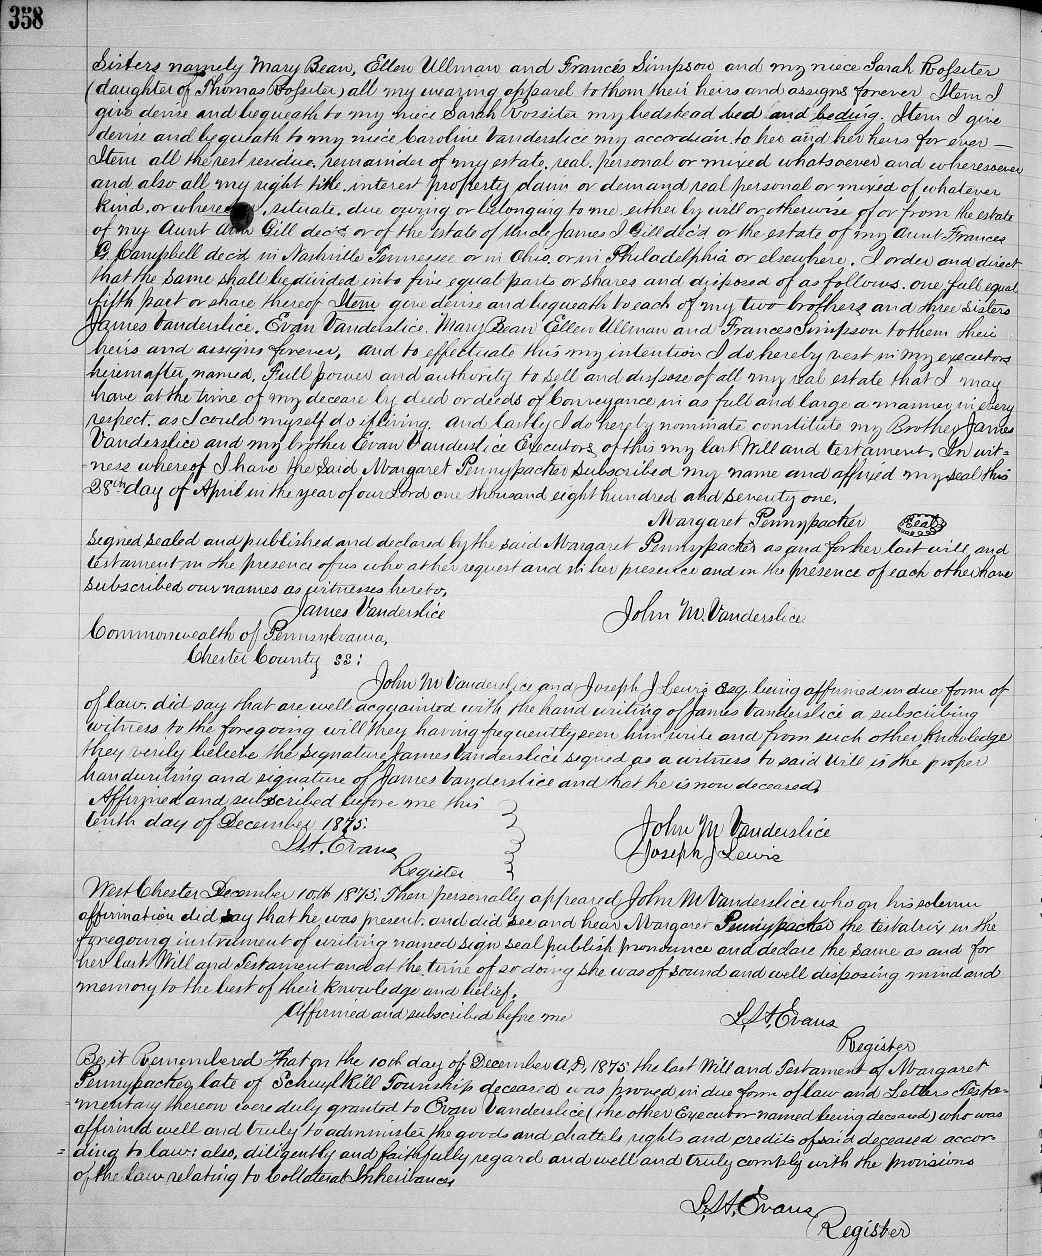 358
Sisters namely Mary Bean, Ellen Ullman and Frances Simpson and my niece Sarah Rossiter
(daughter of Thomas Rossiter) all my wearing apparel to them their heirs and assigns forever Item I
give devise and bequeath to my niece Sarah Rossiter my bedstead bed and beding. Item I give
devise and bequeath to my niece Caroline Vanderslice my accordian to her and her heirs for ever —
Item all the rest residue, remainder of my estate, real, personal or mixed whatsoever and wheresoever
and also all my right title, interest property claim or demand real personal or mixed of whatever
kind, or where , situate, due owing or belonging to me either by will or otherwise of or from the estate
of my Aunt Ann Gill dec'd or of the estate of Uncle James I Gill dec'd or the estate of my Aunt Frances
G Campbell dec'd in Nashville Tennessee or in Ohio, or in Philadelphia or elsewhere, I order and direct
that the same shall be divided into five equal parts or shares and disposed of as follows, one full equal
fifth part or share thereof Item give devise and bequeath to each of my two brothers and three sisters
James Vanderslice, Evan Vanderslice, Mary Bean Ellen Ullman and Frances Simpson to them their
heirs and assigns forever, and to effectuate this my intention I do hereby vest in my executors
hereinafter named, Full power and authority to sell and dispose of all my real estate that I may
have at the time of my decease by deed or deeds of Conveyance in as full and large a manner in every
respect as I could myself do if living, and lastly I do hereby nominate constitute my Brother James
Vanderslice and my brother Evan Vanderslice Executors of this my last Will and testament. In wit=
ness whereof I have the said Margaret Pennypacker subscribed my name and affixed my seal this
28th day of April in the year of our Lord one thousand eight hundred and seventy one.
Margaret Pennypacker Seal
Signed sealed and published and declared by the said Margaret Pennypacker as and for her last will and
testament in the presence of us who at her request and in her presence and in the presence of each other have
subscribed our names as witnesses hereto,
James Vanderslice John M. Vanderslice
Commonwealth of Pennsylvania,
Chester County ss:
John M Vanderslice and Joseph J Lewis Esq. being affirmed in due form of
law, did say that are well acquainted with the hand writing of James Vanderslice a subscribing
witness to the foregoing will they having frequently seen him write and from such other knowledge
they verily believe the signature James Vanderslice signed as a witness to said will is the proper
handwriting and signature of James Vanderslice and that he is now deceased
Affirmed and subscribed before me this
tenth day of December 1875.
John M Vanderslice
Joseph J Lewis
Evans
Register
West Chester December 10th 1875, Then personally appeared John M Vanderslice who on his solemn
affirmation did say that he was present, and did see and hear Margaret Pennypacker the testatrix in the
foregoing instrument of writing named sign seal publish pronounce and declare the same as and for
her last Will and Testament and at the time of so doing she was of sound and well disposing mind and
memory to the best of their knowledge and belief.
Affirmed and subscribed before me
Evans
Register
Be it Remembered That on the 10th day of December A.D. 1875 the last Will and Testament of Margaret
Pennypacker, late of Schuylkill Township deceased was proved in due form of law and Letters Testa=
=mentary thereon were duly granted to Evan Vanderslice (the other Executor named being deceased) who was
affirmed well and truly to administer the goods and chattels rights and credits of said deceased accor=
=ding to law; also, diligently and faithfully regard and well and truly comply with the provisions
of the law relating to Collateral Inheritances
Evans
Register